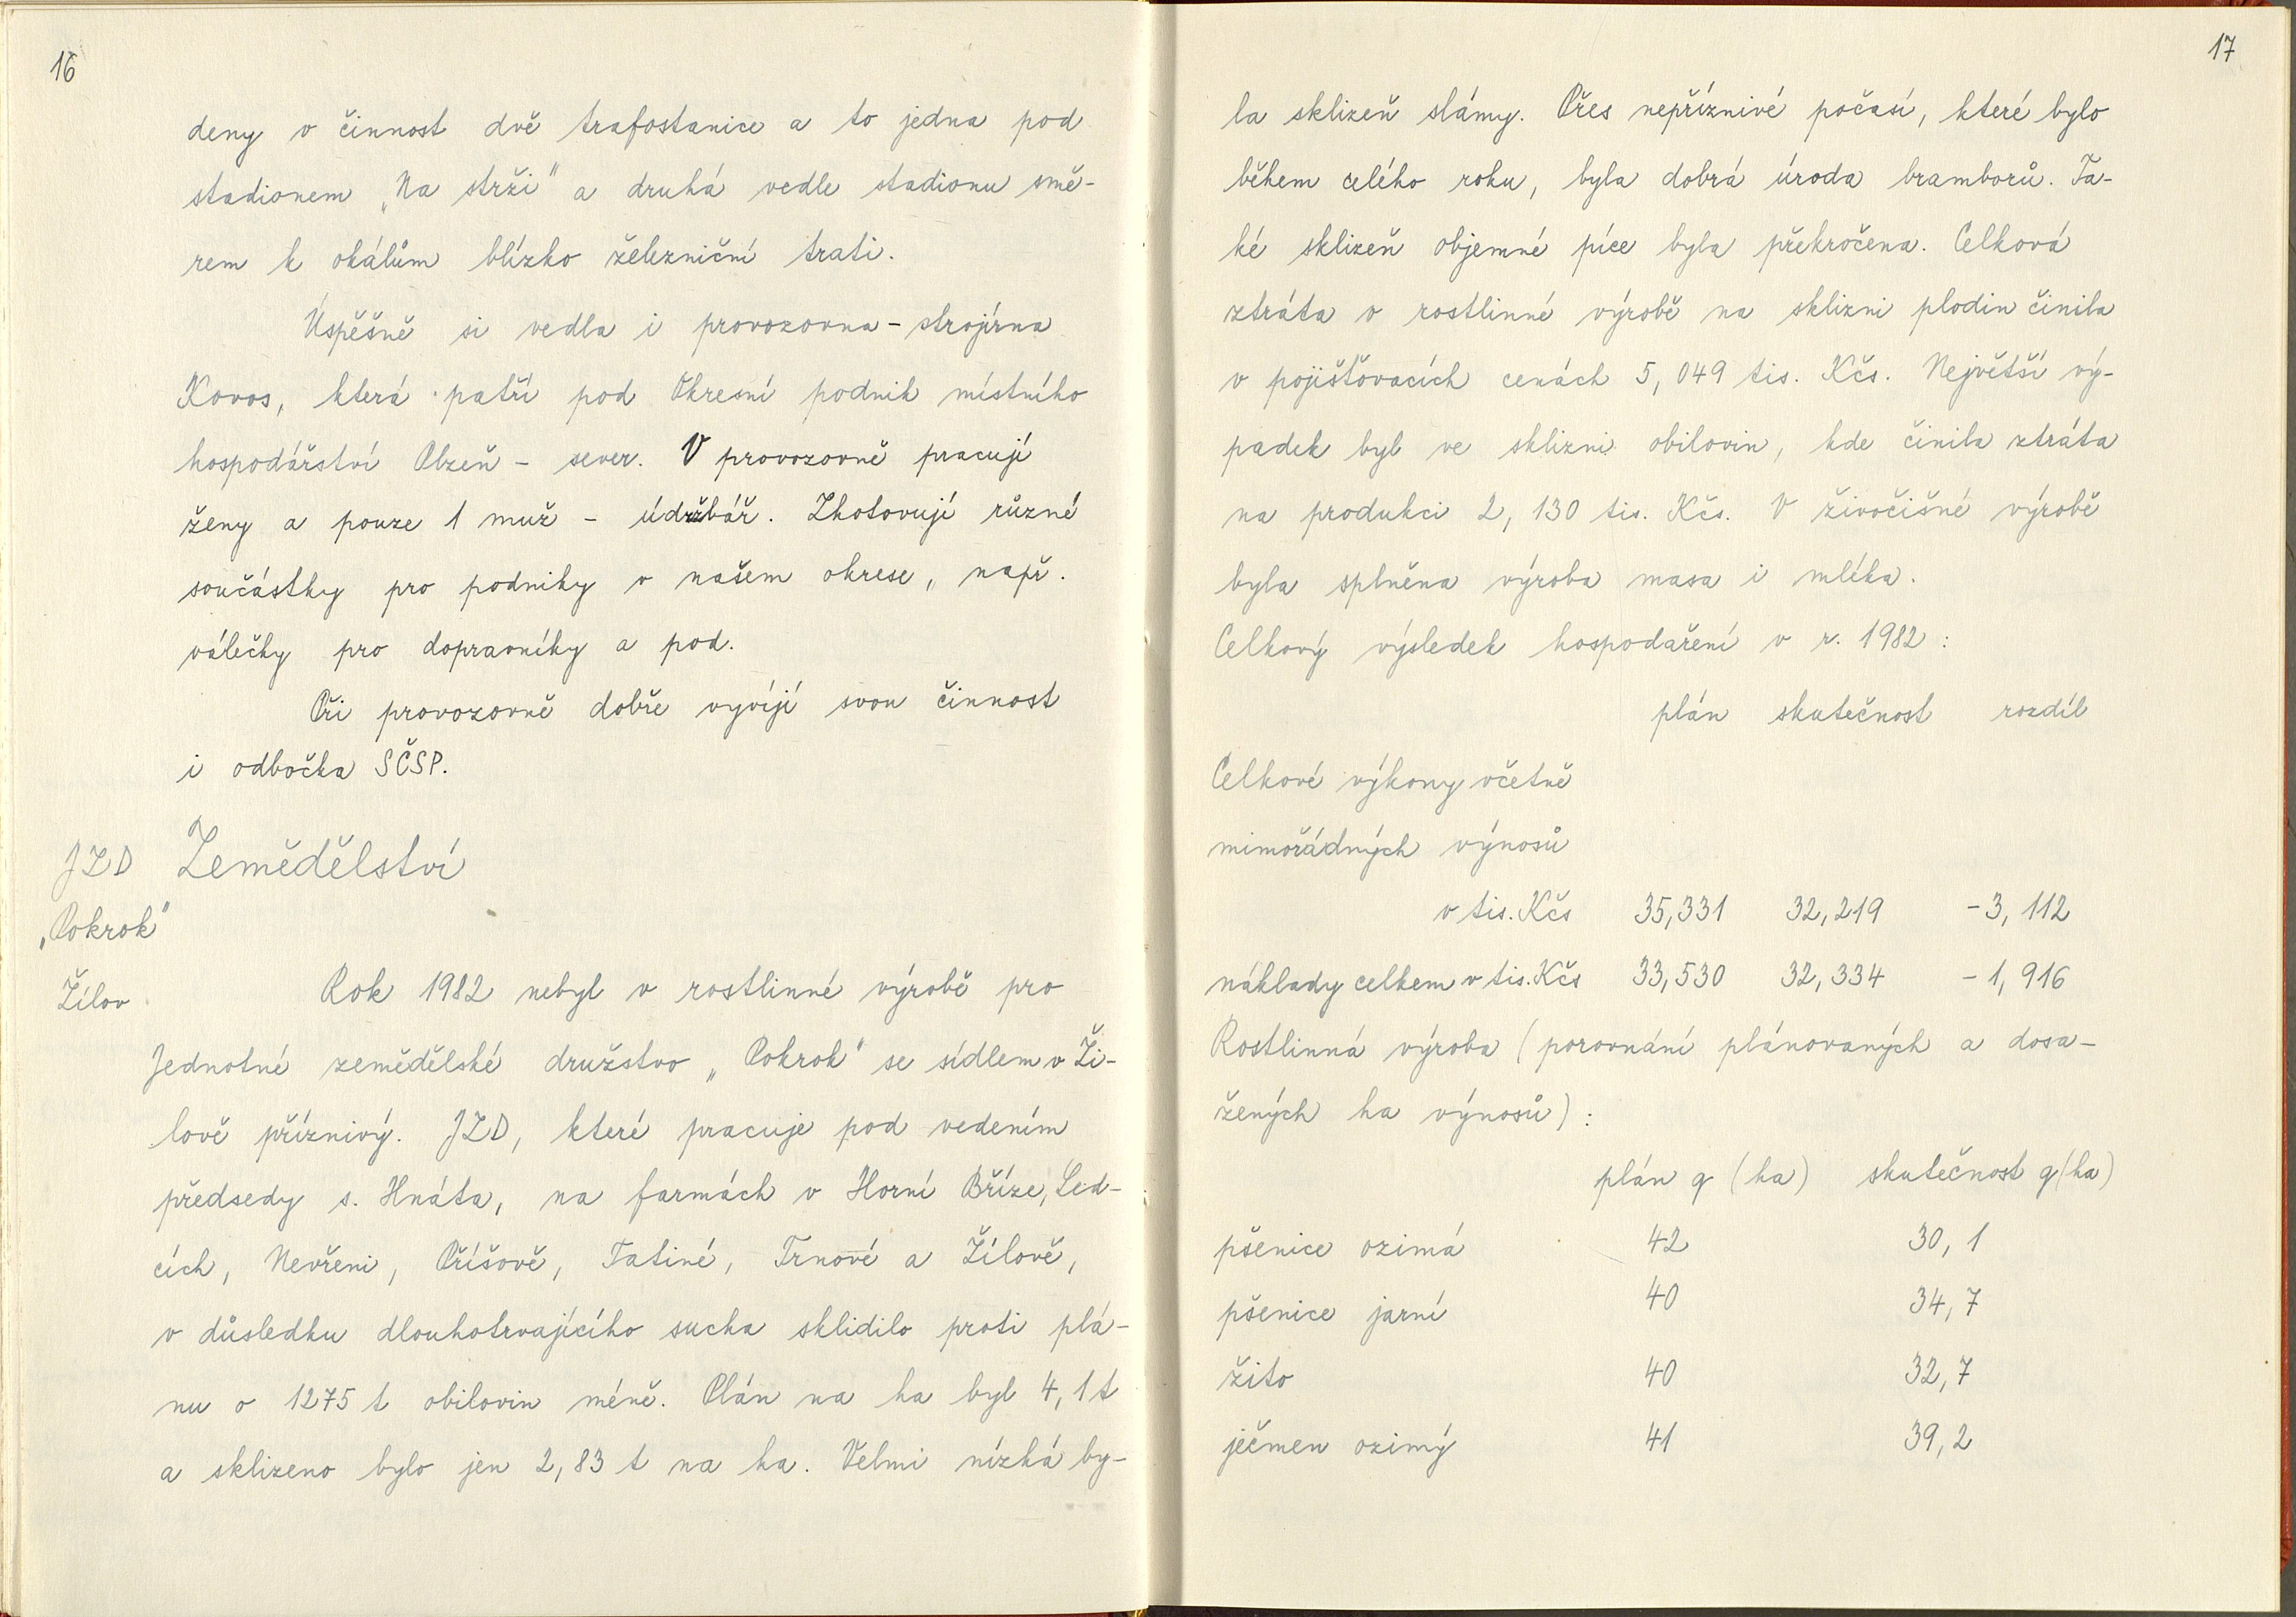 16
deny v činnost dvě trafostanice a to jedna pod
stadionem „Na strži" a druhá vedle stadionu smě-
rem k okálům blízko železniční trati.
Úspěšně si vedla i provozovna - strojírna
Kovos, která patří pod Okresní podnik místního
hospodářství Plzeň - sever. V provozovně pracují
ženy a pouze 1 muž - údržbář. Zhotovují různé
součástky pro podniky v našem okrese, např.
válečky pro dopravníky a pod.
Při provozovně dobře vyvíjí svou činnost
i odbočka SČSP.
JZD Zemědělství
„Pokrok"
Žilov Rok 1982 nebyl v rostlinné výrobě pro
Jednotné zemědělské družstvo „Pokrok" se sídlem v Ži-
lově příznivý. JZD, které pracuje pod vedením
předsedy s. Hnáta, na farmách v Horní Bříze, Led-
cích, Nevřeni, Příšově, Tatiné, Trnové a Žilově,
v důsledku dlouhotrvajícího sucha sklidilo proti plá-
nu o 1275 t obilovin méně. Plán na ha byl 4,1 t
a sklizeno bylo jen 2,83 t na ha. Velmi nízká by-
17
la sklizeň slámy. Přes nepříznivé počasí, které bylo
během celého roku, byla dobrá úroda bramborů. Ta-
ké sklizeň objemné píce byla překročena. Celková
ztráta v rostlinné výrobě na sklizni plodin činila
v pojišťovacích cenách 5,049 tis. Kčs. Největší vý-
padek byl ve sklizni obilovin, kde činila ztráta
na produkci 2,130 tis. Kčs. V živočišné výrobě
byla splněna výroba masa i mléka.
Celkový výsledek hospodaření v r. 1982:
plán skutečnost rozdíl
Celkové výkony včetně
mimořádných výnosů
v tis. Kčs 35,331 32,219 -3,112
náklady celkem v tis. Kčs 33,530 32,334 -1,916
Rostlinná výroba (porovnání plánovaných a dosa-
žených ha výnosů):
plán q (ha) skutečnost q (ha)
pšenice ozimá 42 30,1
pšenice jarní 40 34,7
žito 40 32,7
ječmen ozimý 41 39,2